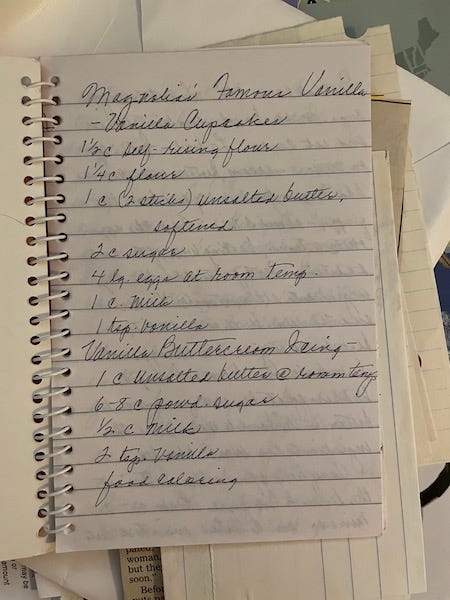 Magnolias' Famous Vanilla
- Vanilla Cupcakes
1½ c self-rising flour
1¼ c flour
1 c (2 sticks) unsalted butter,
softened
2 c sugar
4 lg. eggs at room temp.
1 c. milk
1 tsp. vanilla
Vanilla Buttercream Icing -
1 c unsalted butter @ room temp
6-8 c powd. sugar
½ c milk
2 tsp. vanilla
food coloring
may be
amount
pated
woman
but the
soon."
Befo